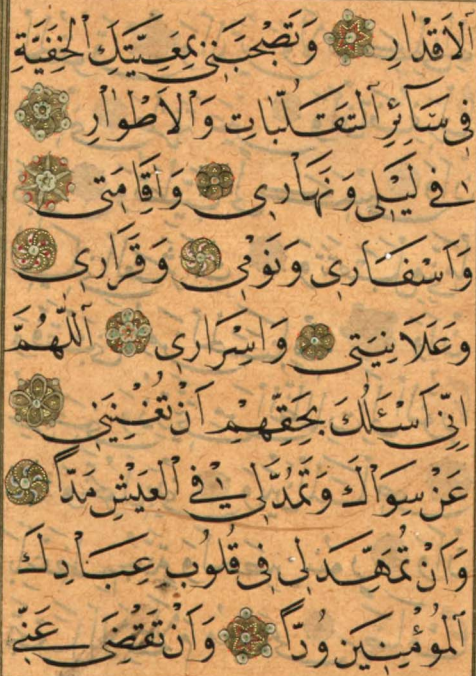 الْاَقْدَارِ وَتَصْحَبَنِى بِمَعِيَّتِكَ الْخَفِيَّةِ
فِى سَآئِرِ التَّقَلُّبَاتِ وَالْاَطْوَارِ
فِى لَيْلِى وَنَهَارِى وَاِقَامَتِى
وَاَسْفَارِى وَنَوْمِى وَقَرَارِى
وَعَلَانِيَتِى وَاِسْرَارِى اَللّٰهُمَّ
اِنِّى اَسْئَلُكَ بِحَقِّهِمْ اَنْ تُغْنِيَنِى
عَنْ سِوَاكَ وَتَمُدَّ لِى فِى الْعَيْشِ مَدًّا
وَاَنْ تُمَهِّدَ لِى فِى قُلُوبِ عِبَادِكَ
الْمُؤْمِنِينَ وُدًّا وَاَنْ تَقْضِىَ عَنِّى